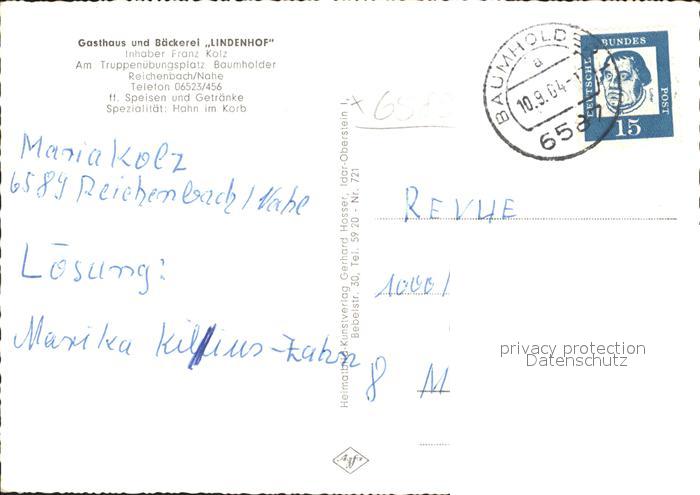 Gasthaus und Bäckerei „LINDENHOF"
Inhaber Franz Kolz
Am Truppenübungsplatz Baumholder
Reichenbach/Nahe
Telefon 06523/456
ff. Speisen und Getränke
Spezialität: Hahn im Korb
Maria Kolz
6589 Reichenbach/Nahe
Lösung:
Marika Kilius-Zahn
Heimatbild Kunstverlag Gerhard Hosser, Idar-Oberstein 1,
Bebelstr. 30, Tel. 59 20 - Nr. 721
Agfa
BAUMHOLDE
a
10.9.64-1
658
DEUTSCHE
BUNDES
POST
15
REVUE
1000
8 M
privacy protection
Datenschutz